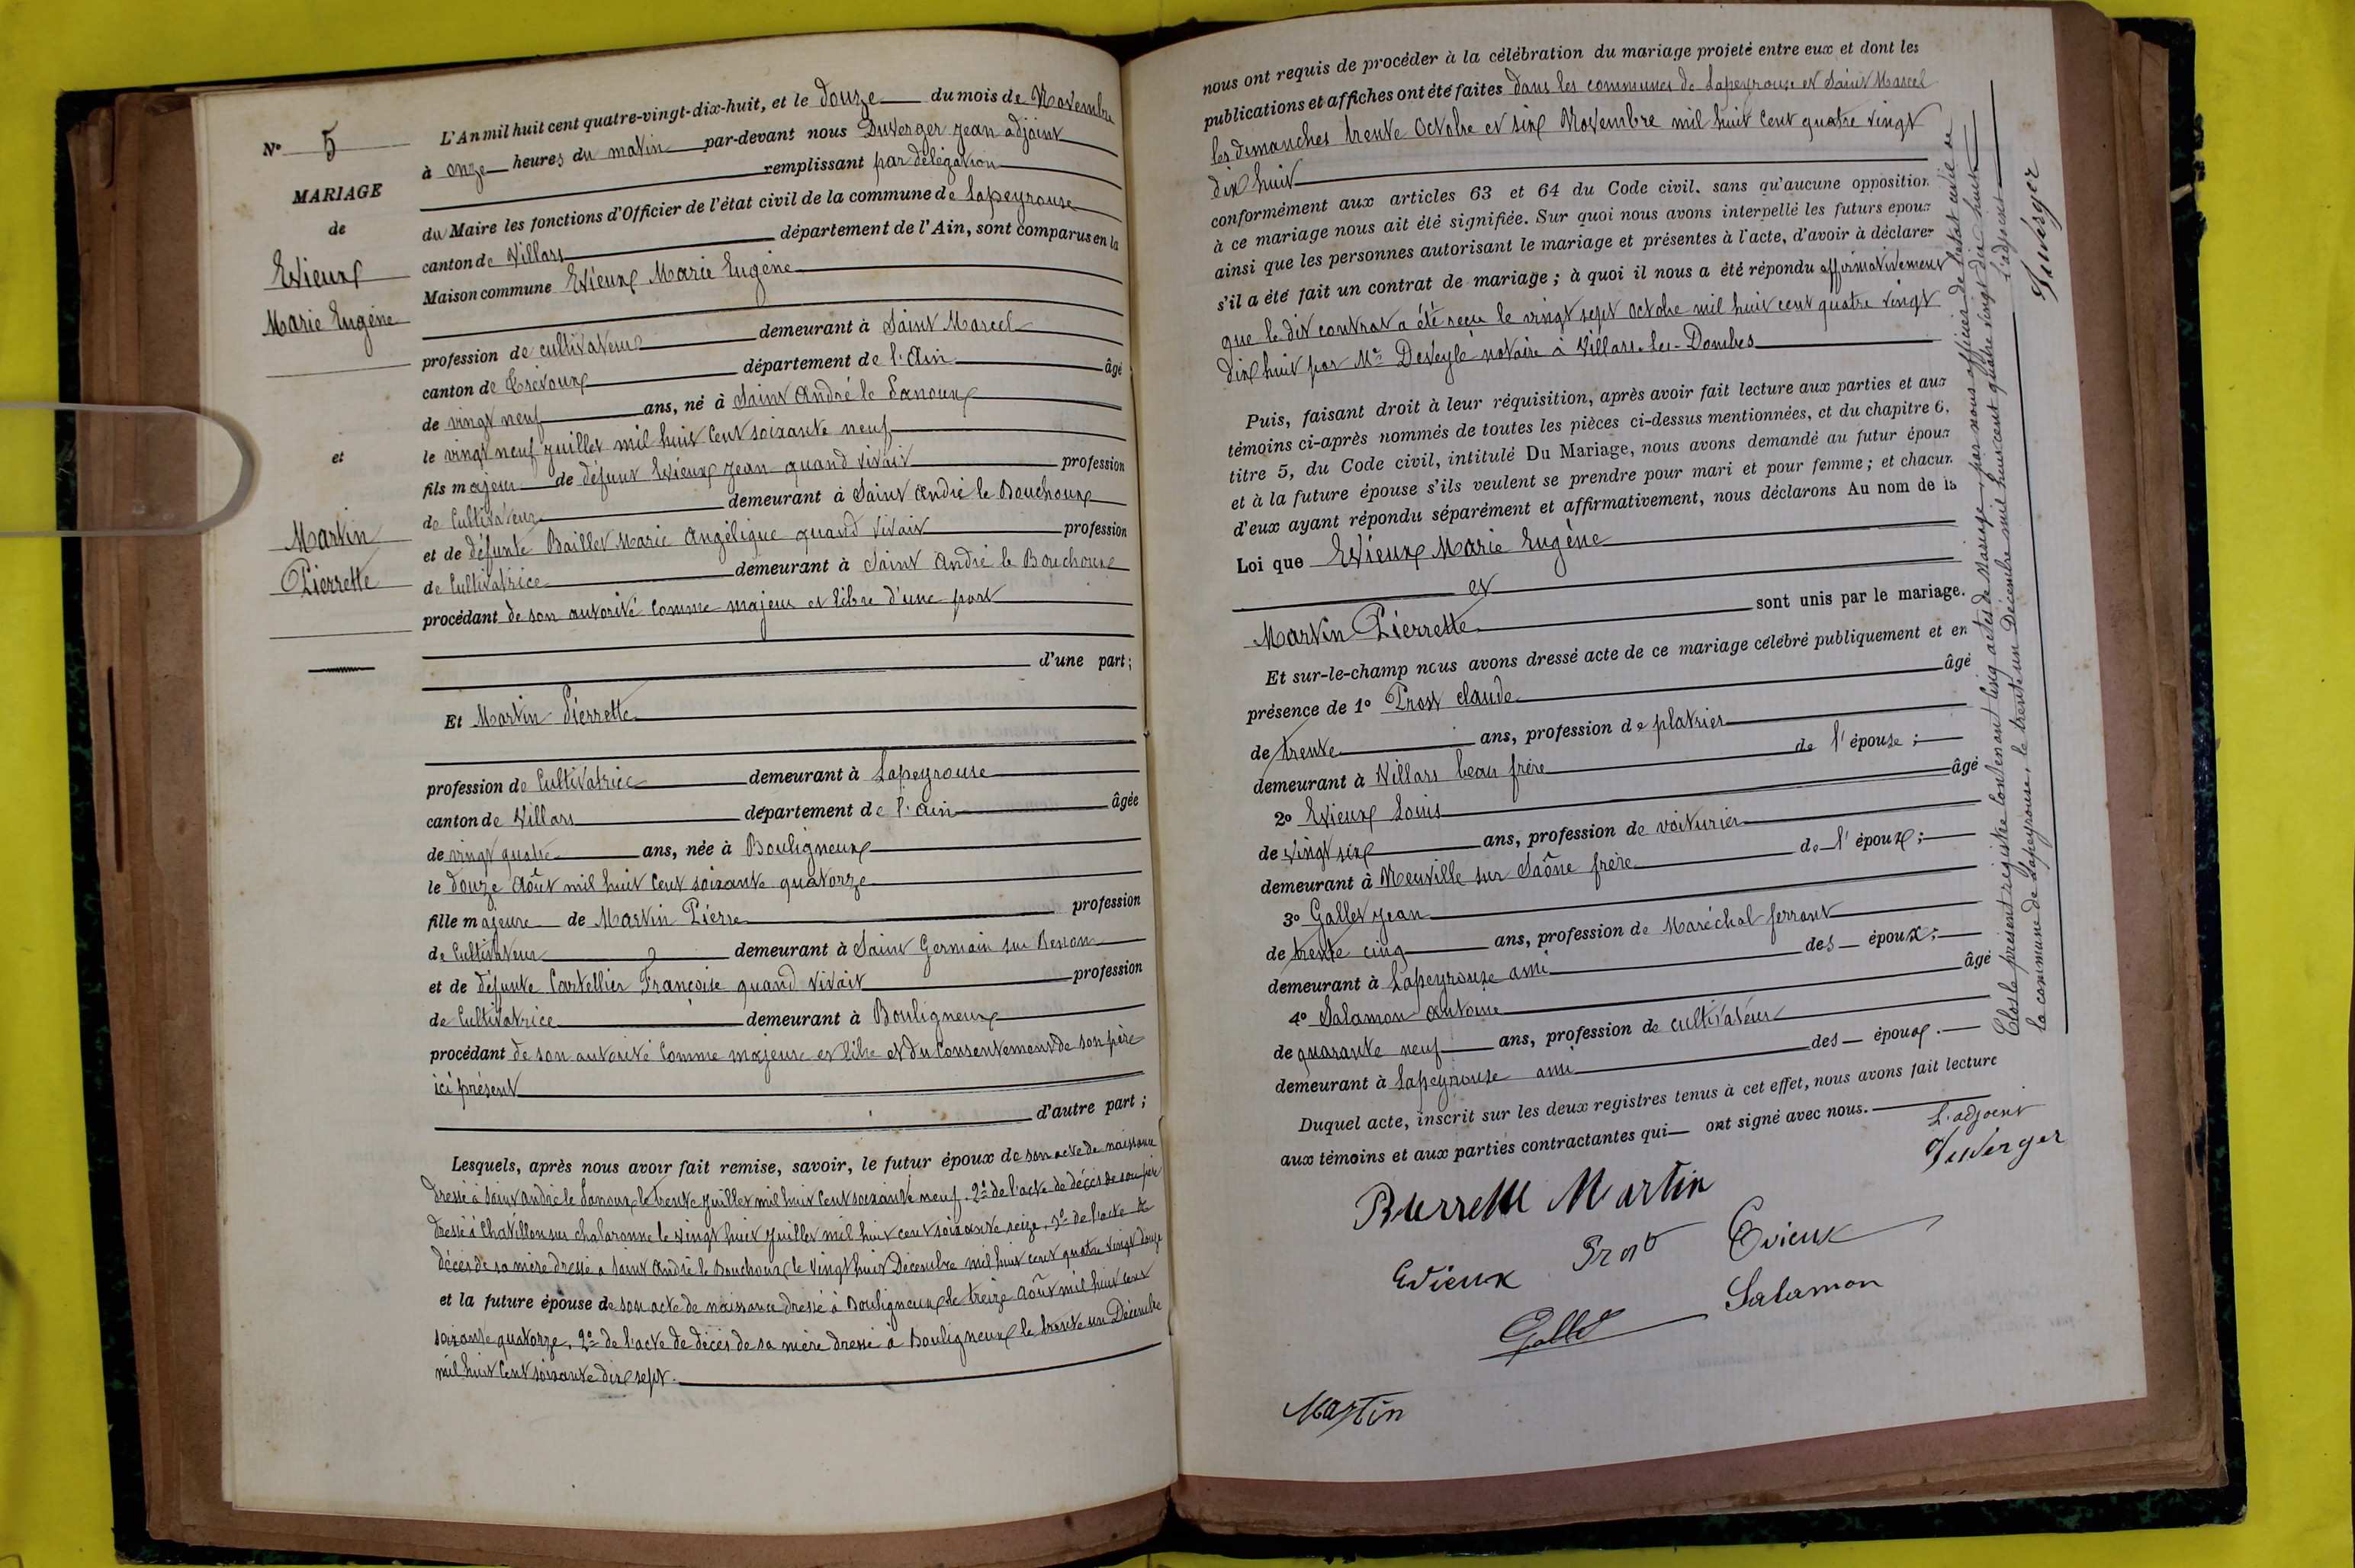 N° 5
MARIAGE
de
Evieux
Marie Eugène
et
Martin
Pierrette
L'An mil huit cent quatre-vingt-dix-huit, et le douze du mois de Novembre
à onze heures du matin par-devant nous Duverger Jean adjoint
remplissant par délégation
du Maire les fonctions d'Officier de l'état civil de la commune de Lapeyrouse
canton de Villars département de l'Ain, sont comparus en la
Maison commune Evieux Marie Eugène
profession de cultivateur demeurant à Saint Marcel
canton de Trévoux département de l'Ain âgé
de vingt neuf ans, né à Saint André le Panoux
le vingt neuf juillet mil huit cent soixante neuf
fils majeur de défunt Evieux Jean quand vivait profession
de Cultivateur demeurant à Saint André le Bouchoux
et de défunte Baillet Marie Angélique quand vivait profession
de Cultivatrice demeurant à Saint André le Bouchoux
procédant de son autorité comme majeur et libre d'une part
d'une part;
Et Martin Pierrette
profession de Cultivatrice demeurant à Lapeyrouse
canton de Villars département de l'Ain âgée
de vingt quatre ans, née à Bouligneux
le douze Août mil huit cent soixante quatorze
fille majeure de Martin Pierre profession
de Cultivateur demeurant à Saint Germain sur Renon
et de défunte Cartellier Françoise quand vivait profession
de Cultivatrice demeurant à Bouligneux
procédant de son autorité comme majeure et libre et du consentement de son père
ici présent
d'autre part;
Lesquels, après nous avoir fait remise, savoir, le futur époux de son acte de naissance
dressé à Saint André le Panoux le trente juillet mil huit cent soixante neuf. 2° de l'acte de décès de son père
dressé à Chatillon sur chalaronne le vingt huit juillet mil huit cent soixante seize, 3° de l'acte de
décès de sa mère dressé à Saint André le Bouchoux le vingt huit Décembre mil huit cent quatre vingt douze
et la future épouse de son acte de naissance dressé à Bouligneux le treize Août mil huit cent
soixante quatorze, 2° de l'acte de décès de sa mère dressé à Bouligneux le trente un Décembre
mil huit cent soixante dix sept.
nous ont requis de procéder à la célébration du mariage projeté entre eux et dont les
publications et affiches ont été faites dans les communes de Lapeyrouse et Saint Marcel
les dimanches trente Octobre et six Novembre mil huit cent quatre vingt
dix huit
conformément aux articles 63 et 64 du Code civil. sans qu'aucune opposition
à ce mariage nous ait été signifiée. Sur quoi nous avons interpellé les futurs epoux
ainsi que les personnes autorisant le mariage et présentes à l'acte, d'avoir à déclarer
s'il a été fait un contrat de mariage; à quoi il nous a été répondu affirmativement
que le dit contrat a été reçu le vingt sept Octobre mil huit cent quatre vingt
dix huit par Me Deveyle notaire à Villars-les-Dombes
Puis, faisant droit à leur réquisition, après avoir fait lecture aux parties et aux
témoins ci-après nommés de toutes les pièces ci-dessus mentionnées, et du chapitre 6,
titre 5, du Code civil, intitulé Du Mariage, nous avons demandé au futur époux
et à la future épouse s'ils veulent se prendre pour mari et pour femme; et chacun
d'eux ayant répondu séparément et affirmativement, nous déclarons Au nom de la
Loi que Evieux Marie Eugène
et
Martin Pierrette sont unis par le mariage.
Et sur-le-champ nous avons dressé acte de ce mariage célébré publiquement et en
présence de 1° Prost claude âgé
de trente ans, profession de platrier
demeurant à Villars beau frère de l'épouse;
2° Evieux Louis âgé
de vingt six ans, profession de voiturier
demeurant à Neuville sur Saône frère de l'époux;
3° Gallet Jean
de trente cinq ans, profession de Maréchal ferrant
demeurant à Lapeyrouse ami des époux;
4° Salamon Antoine âgé
de quarante neuf ans, profession de cultivateur
demeurant à Lapeyrouse ami des époux.
Duquel acte, inscrit sur les deux registres tenus à cet effet, nous avons fait lecture
aux témoins et aux parties contractantes qui ont signé avec nous.
L'adjoint
Duverger
Pierrette Martin
Evieux Prost Evieux
Gallet Salamon
Martin
Clos le présent registre contenant cinq actes de Mariage, par nous officier de l'état civil de
la commune de Lapeyrouse, le trente un Décembre mil huit cent quatre vingt dix huit
L'adjoint
Duverger